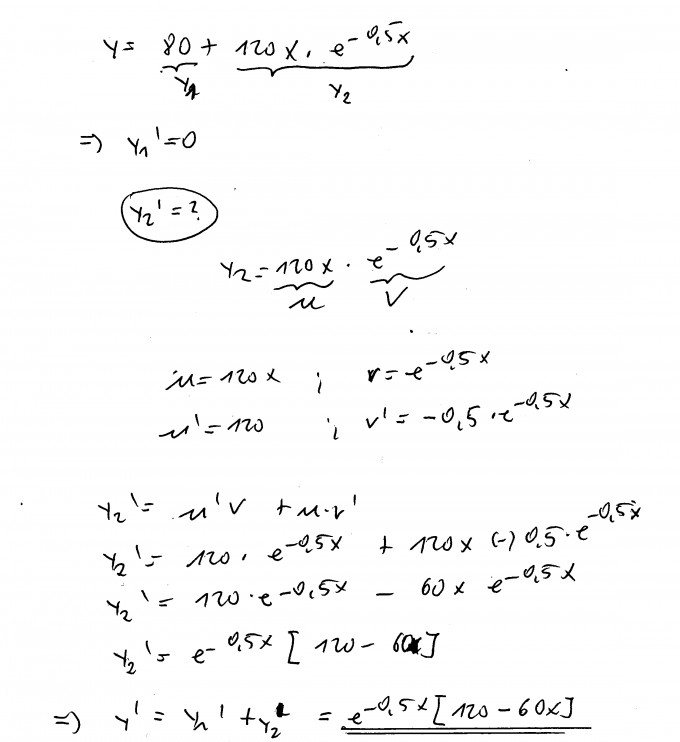 y = 80 + 120x · e^-0,5x
y1 y2
=> y1' = 0
y2' = ?
y2 = 120x · e^-0,5x
u v
u = 120x ; v = e^-0,5x
u' = 120 ; v' = -0,5 · e^-0,5x
y2' = u'v + u·v'
y2' = 120 · e^-0,5x + 120x (-) 0,5 · e^-0,5x
y2' = 120 · e^-0,5x - 60x e^-0,5x
y2' = e^-0,5x [120 - 60x]
=> y' = y1' + y2' = e^-0,5x [120 - 60x]